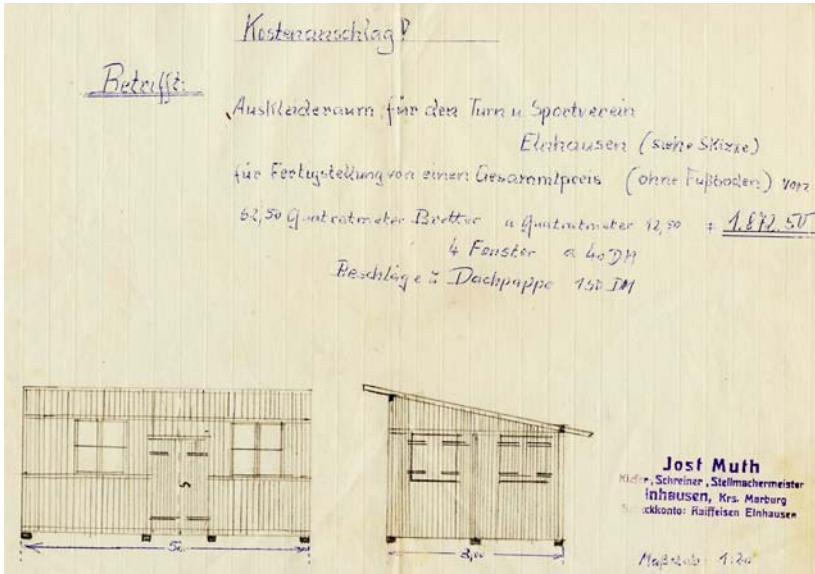 Kostenanschlag!
Betrifft:
Auskleideraum für den Turn u. Sportverein
Elnhausen (siehe Skizze)
für Fertigstellung von einen Gesammtpreis (ohne Fußboden) von
62,50 Quatratmeter Bretter a Quatratmeter 12,50 = 1.872.50
4 Fenster a 40 DM
Beschläge u. Dachpappe 150 DM
Jost Muth
Schreiner, Stellmachermeister
inhausen, Krs. Marburg
ckkonto: Raiffeisen Elnhausen
Maßstab 1:20